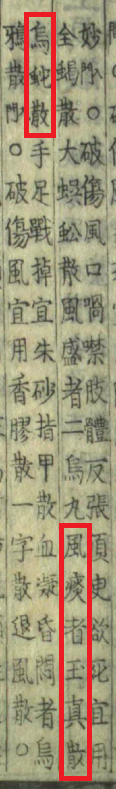 妙門○破傷風口喎噤肢體反張須臾欲死宜用
全蝎散大蜈蚣散風盛者二烏丸風痰者玉真散
烏蛇散手足戰掉宜朱砂指甲散血凝昏悶者烏
鴉散門○破傷風宜用香膠散一字散退風散○